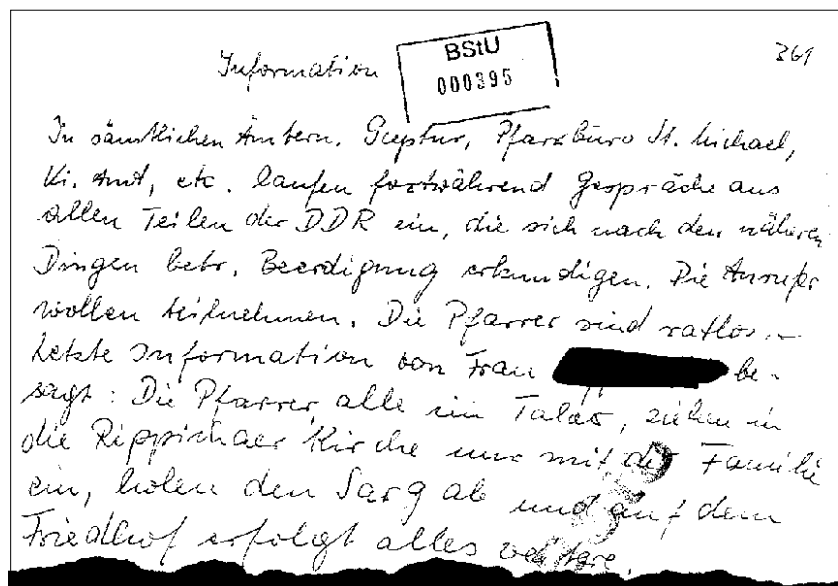 Information
BStU
000395
361
In sämtlichen Ämtern. Suptur, Pfarrbüro St. Michael,
Ki. Amt, etc. laufen fortwährend Gespräche aus
allen Teilen der DDR ein, die sich nach den näheren
Dingen betr. Beerdigung erkundigen. Die Anrufer
wollen teilnehmen. Die Pfarrer sind ratlos.
Letzte Information von Frau be-
sagt: Die Pfarrer, alle im Talar, ziehen in
die Rippichaer Kirche nur mit der Familie
ein, holen den Sarg ab und auf dem
Friedhof erfolgt alles